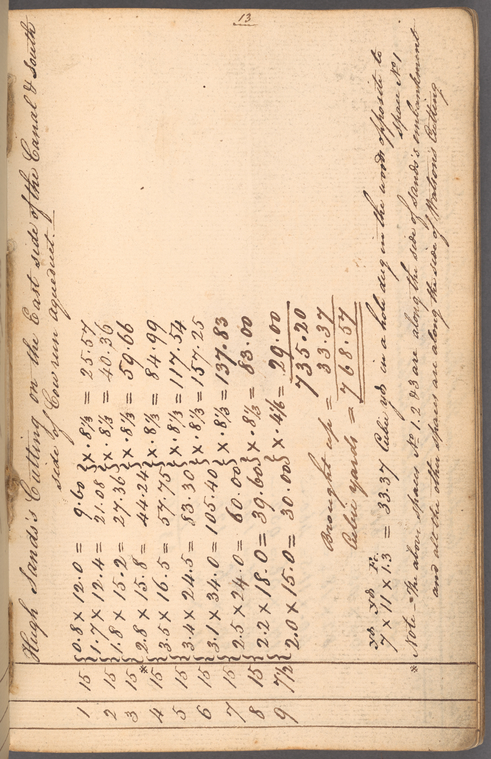 13
Hugh Sands's Cutting on the East side of the Canal & South
side of Cow run aqueduct.
1 15 { 0.8 × 12.0 = 9.60 } × .8⅓ = 25.57
2 15 { 1.7 × 12.4 = 21.08 } × .8⅓ = 40.36
3 15 { 1.8 × 15.2 = 27.36 } × .8⅓ = 59.66
4 15 * { 2.8 × 15.8 = 44.24 } × .8⅓ = 84.99
5 15 { 3.5 × 16.5 = 57.75 } × .8⅓ = 117.54
6 15 { 3.4 × 24.5 = 83.30 } × .8⅓ = 157.25
7 15 { 3.1 × 34.0 = 105.40 } × .8⅓ = 137.83
8 15 { 2.5 × 24.0 = 60.00 } × .8⅓ = 83.00
9 7½ { 2.2 × 18.0 = 39.60 } × 4⅙ = 29.00
2.0 × 15.0 = 30.00
735.20
Brought up = 33.37
Cubic yards = 768.57
yds yds Ft.
7 × 11 × 1.3 = 33.37 Cubic yds in a hole dug in the woods opposite to
space No 1
* Note = The above spaces No 1. 2 & 3 are along the side of Sands's embankment
and all the other spaces are along the side of Watson's Cutting